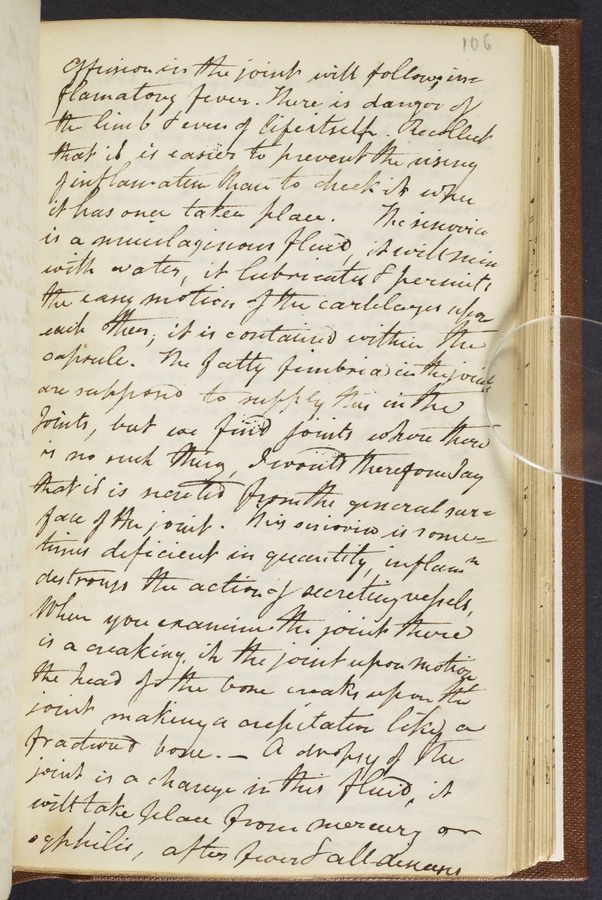 106
Effusion in the joint will follow, in=
flamatory fever. There is danger of
the limb & even of life itself. Recollect
that it is easier to prevent the rising
of inflamation than to check it when
it has once taken place. The sinovia
is a mucilaginous fluid it will mix
with water, it lubricates & permits
the easy motion of the cartilages upon
each other, it is contained within the
capsule. The fatty fimbria in the joint
are supposed to supply this in the
Joints, but we find joints where there
is no such thing, I would therefore say
that it is secreted from the general sur=
face of the joint. This sinovia is some=
times deficient in quantity, inflamn
destroys the action of secreting vessels,
When you examine the joint there
is a creaking in the joint upon motion
the head of the bone creaks upon the
joint making a crepitation like a
fractured bone. — A dropsy of the
joint is a change in this fluid, it
will take place from mercury or
syphilis, after fever & all diseases